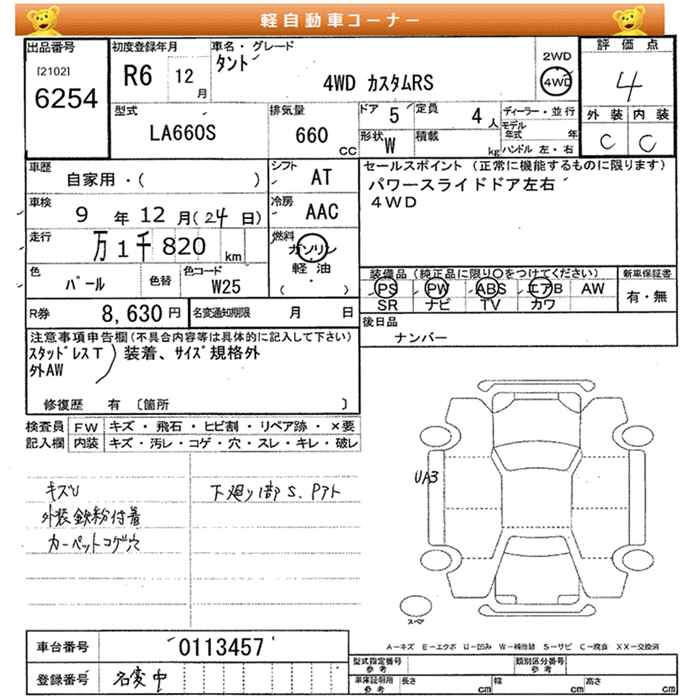 軽自動車コーナー
出品番号
[2102]
6254
初度登録年月
R6 12月
車名・グレード
タント
4WD カスタムRS
2WD
4WD
評価点
4
外装 内装
C C
型式
LA660S
排気量
660 CC
ドア 5
定員 4人
形状 W
積載 kg
ディーラー・並行
モデル年式 年
ハンドル 左・右
車歴
自家用・( )
シフト AT
車検
9年12月(24日)
冷房 AAC
走行
万1千820km
燃料
ガソリン
軽油
( ・ )
色
パール
色替
色コード
W25
セールスポイント(正常に機能するものに限ります)
パワースライドドア左右
4WD
装備品(純正品に限り○をつけてください)
PS PW ABS エアB AW
SR ナビ TV カワ
新車保証書
有・無
R券 8,630円
名変通知期限 月 日
後日品
ナンバー
注意事項申告欄(不具合内容等は具体的に記入して下さい)
スタッドレスT)装着、サイズ規格外
外AW
修復歴 有 〔箇所 〕
検査員記入欄
FW キズ・飛石・ヒビ割・リペア跡・×要
内装 キズ・汚レ・コゲ・穴・スレ・キレ・破レ
キズU
外装鉄粉付着
カーペットコゲ穴
下廻り部S、Pアト
UA3
スペア
A-キズ E-エクボ U-凹み W-補修跡 S-サビ C-腐食 XX-交換済
車台番号 0113457
登録番号 名変中
型式指定番号 参考
類別区分番号 参考
車庫証明用 参考
長さ cm
幅 cm
高さ cm